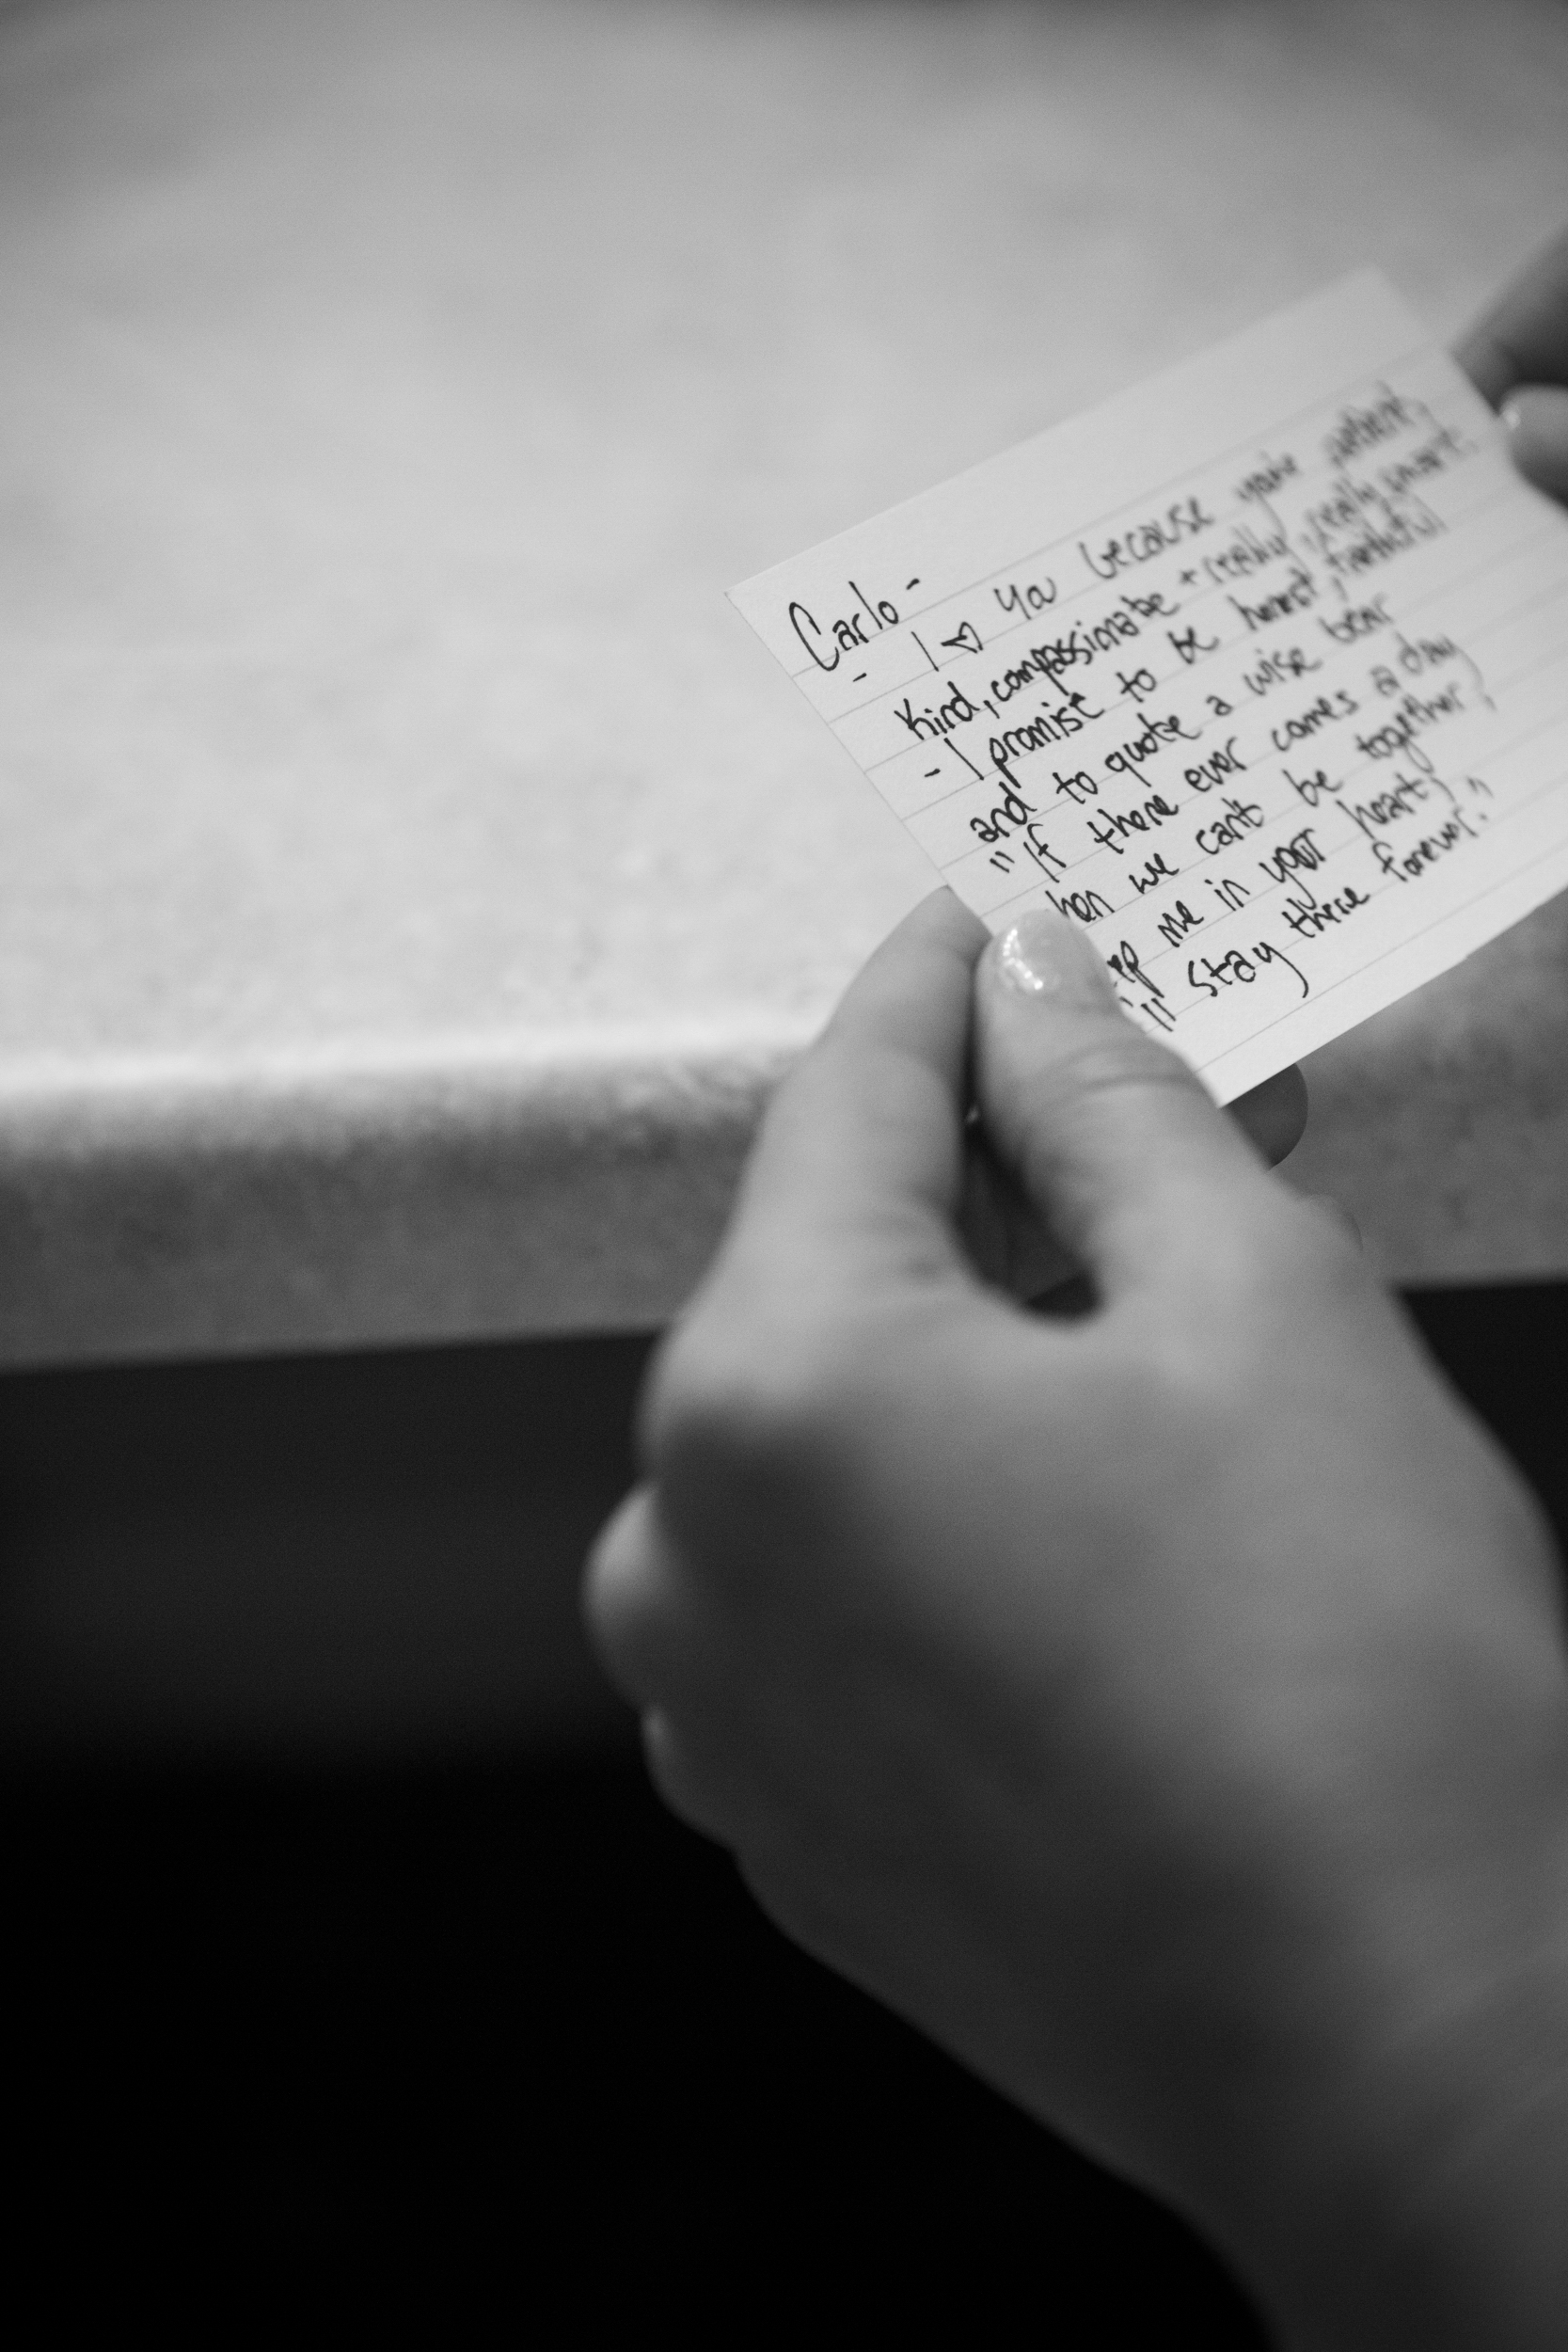 Carlo -
- I ♡ ya because you're patient,
kind, compassionate + really, really smart.
- I promise to be honest, faithful
and to quote a wise bear
"If there ever comes a day
hen we can't be together,
ep me in your heart,
I'll stay there forever."